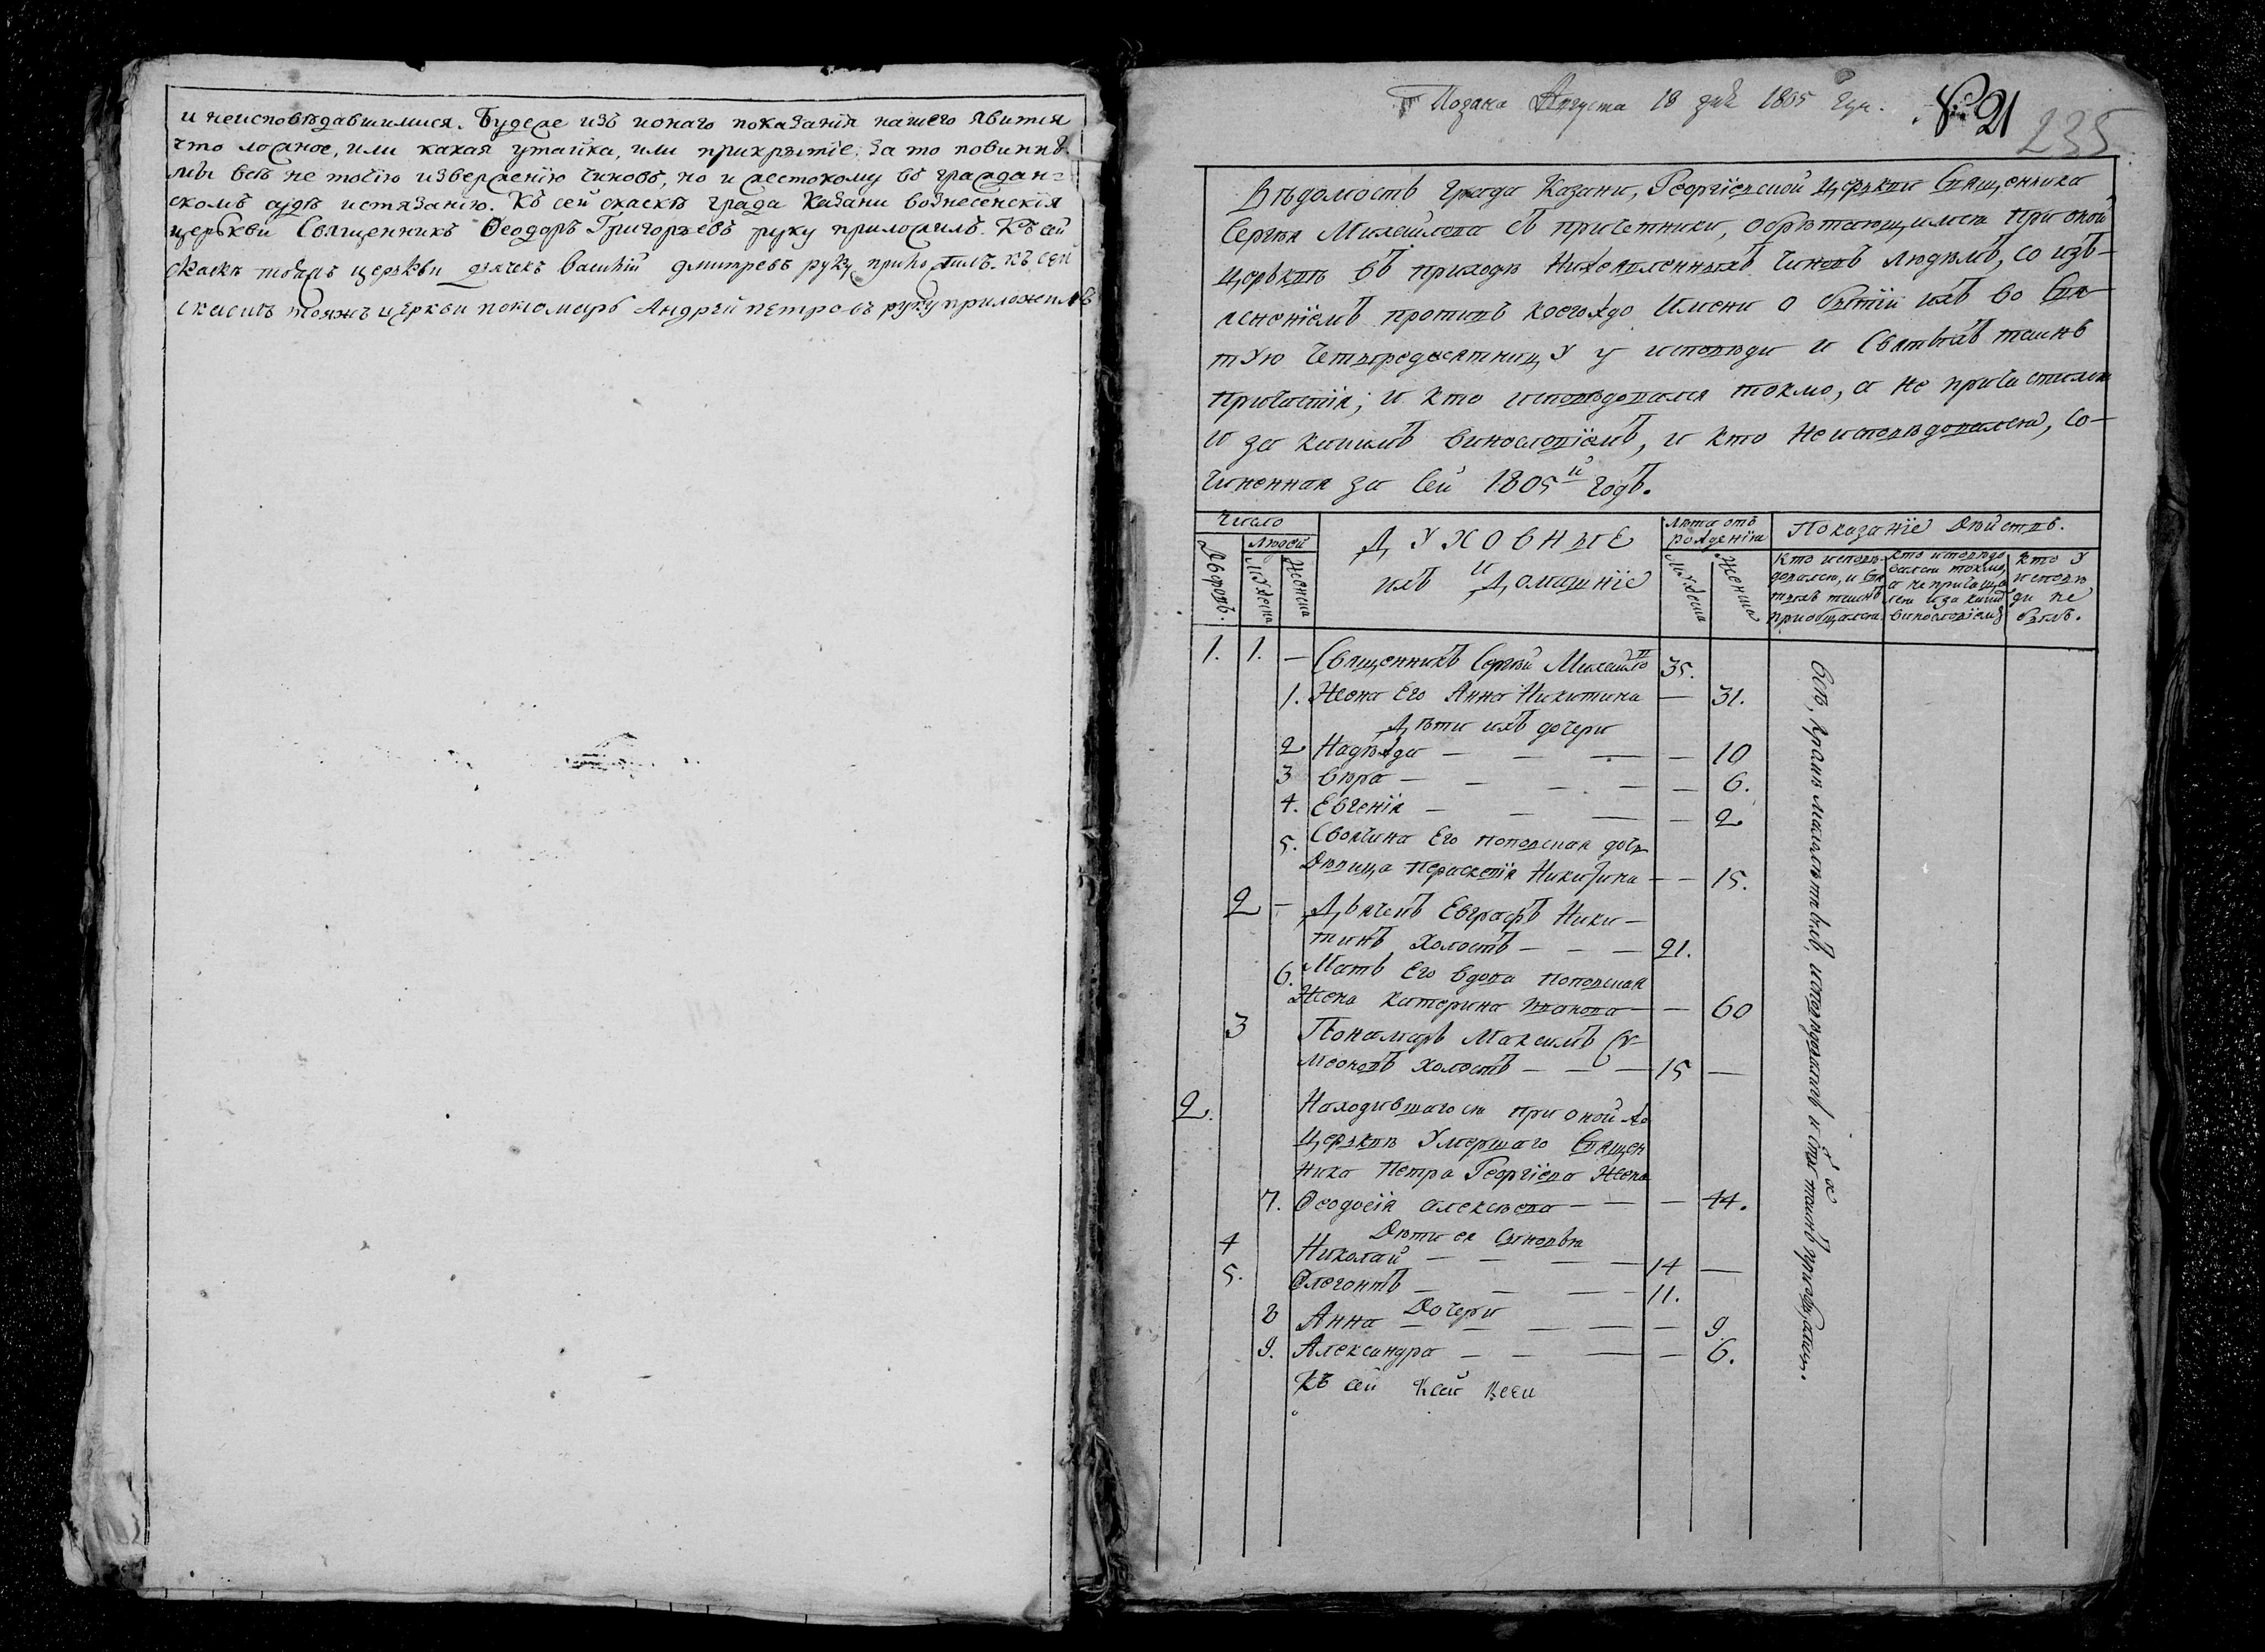 и неисповѣдавшимися. Буде же изъ ионаго показанія нашего явится
что ложное, или какая утайка, или прикрытіе; за то повинны
мы всѣ не точію изверженію чиновъ, но и жестокому въ граждан=
скомъ судѣ истязанію. Къ сей скаскѣ града Казани вознесенскія
церькви Священникъ Ѳеодоръ Григорьевъ руку приложилъ. Къ сей
скаскѣ тояжъ церькви дьячекъ василій дмитревъ руку приложилъ. къ сей
скаскѣ тояжъ церкви пономарь Андрей петровъ руку приложилъ
Подана Августа 18 дня 1805 Года.
№ 21
235
Вѣдомость града Казани, Георгіевской церькви Священника
Сергѣя Михайлова съ причетники, обрѣтающимся при оной
церьквѣ въ приходѣ нижеявленныхъ чиновъ людѣмъ, со изъ-
ясненіемъ противъ коегождо имени о бытіи ихъ во Свя-
тую четыредесятницу у исповѣди и Святыхъ таинъ
причастія; и кто исповѣдовался токмо, а не причастился
и за какимъ винословіемъ, и кто неисповѣдовался, со-
чиненная за сей 1805й годъ.
Число
Людей
Дворовъ.
Мужеска
Женска
Духовные
и
ихъ Домашніе
Лѣта отъ
рожденія
Мужеска
Женска
Показаніе Дѣйствъ.
Кто исповѣ-
довался, и Свя
тыхъ таинъ
приобщался
Кто исповѣдо
вался токмо,
а не причаща
лся и за каким
винословіемъ
Кто у
исповѣ
ди не
былъ.
1. 1. — Священникъ Сергѣй Михайловъ 35.
1. Жена Его Анна Никитина — 31.
Дѣти ихъ дочери
2 Надѣжда — — — — 10
3 Вѣра — — — — — 6.
4. Евгенія — — — — 2
5. Своячина Его поповская дочь
Дѣвица Параскевія Никитина — — 15.
2 — Дьячекъ Евграфъ Ники-
тинъ холостъ — — — 21.
6. Мать Его вдова поповская
Жена Катерина Иванова — — 60
3 Пономарь Максимъ Су-
меоновъ холостъ — — — 15 —
2. Находившагося при оной же
церьквѣ умершаго Священ
ника Петра Георгіева Жена
7. Ѳеодосія алексѣева — — — 44.
Дѣти ея Сыновья
4 Николай — — — — 14 —
5. Флегонтъ — — — 11.
Дочери
8 Анна — — — — — 9.
9. Александра — — — — 6.
Къ сей Ксей Ксеи
Всѣ, кромѣ малолѣтныхъ, исповѣдались и стыхъ таинъ приобщались.